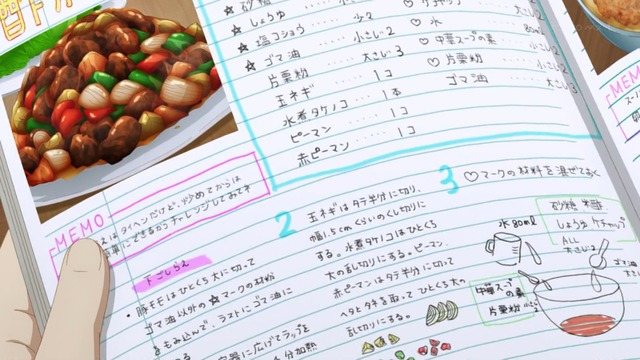 酢ド
☆ 砂糖
☆ しょうゆ ‥‥ 小さじ2
☆ 塩コショウ ‥‥ 少々
☆ ゴマ油 ‥‥ 小さじ2
片栗粉 ‥‥ 大さじ3
玉ネギ ‥‥ 1コ
水煮タケノコ ‥‥ 1本
ピーマン ‥‥ 1コ
赤ピーマン ‥‥ 1コ
♡ ケチャップ
♡ 水 ‥‥ 80ml
♡ 中華スープの素
♡ 片栗粉 ‥‥ 小さじ2
ゴマ油 ‥‥ 大さじ3
MEMO
はタイヘンだけど、炒めてからは
にできるからチャレンジしてみてネ
下ごしらえ
・豚モモはひとくち大に切って
ゴマ油以外の☆マークの材料
をもみ込んで、ラストにゴマ油に
容器に広げてラップを
分加熱
2
玉ネギはタテ半分に切り、
幅1.5cmくらいのくし切りに
する。水煮タケノコはひとくち
大の乱切りにする。ピーマン、
赤ピーマンはタテ半分に切って
ヘタとタネを取ってひとくち大の
乱切りにする。
3
♡マークの材料を混ぜておく
水 80ml
砂糖
しょうゆ ケチャップ
ALL
大さじ
中華スープ
の素
片栗粉
ゴマ油
MEMO